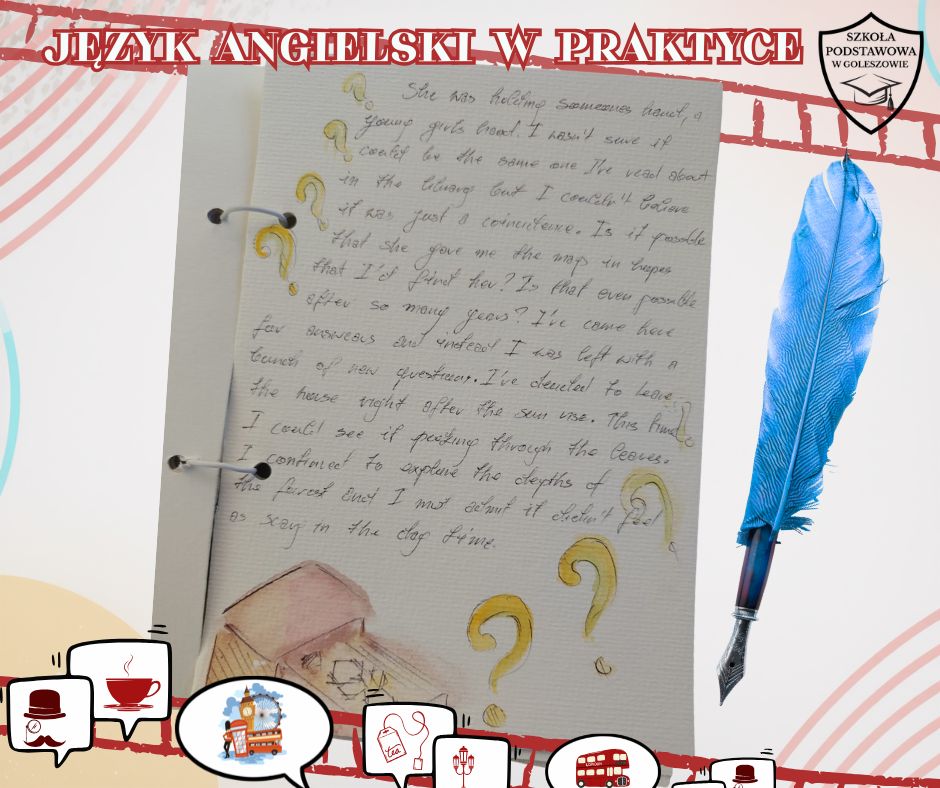 JĘZYK ANGIELSKI W PRAKTYCE
SZKOŁA
PODSTAWOWA
W GOLESZOWIE
She was holding someones hand, a
young girls hand. I wasn't sure if
could be the same one I've read about
in the library but I couldn't believe
it was just a coincitence. Is it possible
that she gave me the map in hopes
that I'd find her? Is that even possible
after so many years? I've come here
for answears and instead I was left with a
bunch of new questions. I've decided to leave
the house right after the sun rise. This time
I could see it peaking through the leaves.
I continued to explore the depths of
the forest and I must admit it didn't feel
as scary in the day time.
tea
LONDON